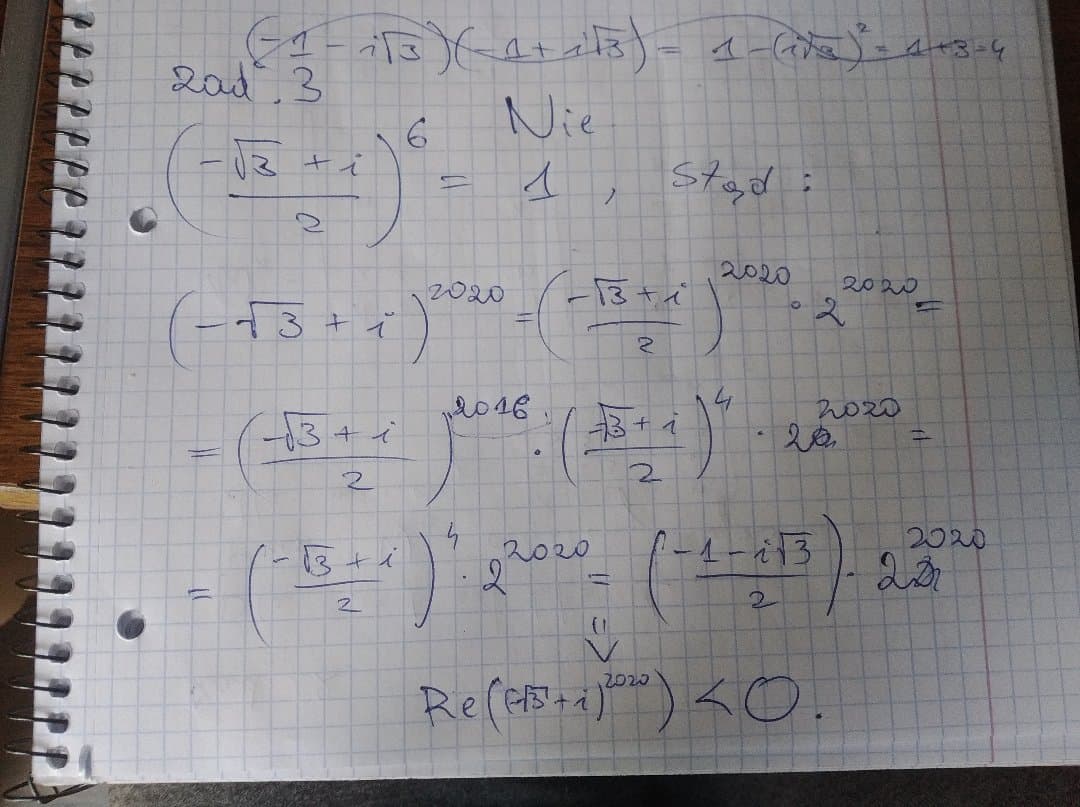 (-1 - i√3)(-1 + i√3) = 1 - (i√3)² = 1+3=4
Zad. 3
Nie
((-√3 + i)/2)^6 = 1, stąd:
(-√3 + i)^2020 = ((-√3 + i)/2)^2020 · 2^2020 =
= ((-√3 + i)/2)^2016 · ((-√3 + i)/2)^4 · 2^2020 =
= ((-√3 + i)/2)^4 · 2^2020 = ((-1 - i√3)/2) · 2^2020
⇓
Re((-√3 + i)^2020) < 0.